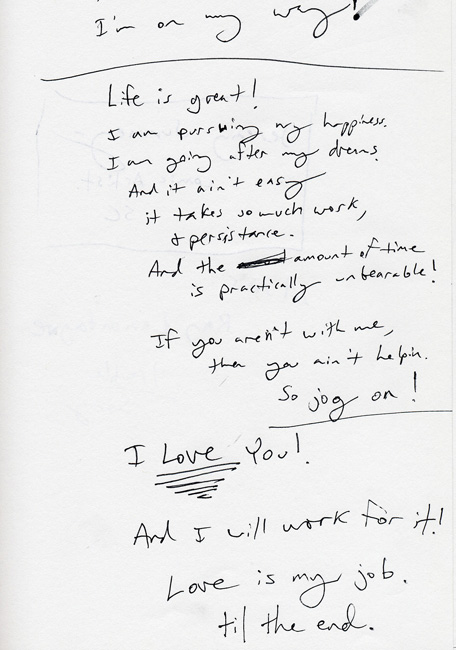 I'm on my way!
Life is great!
I am pursuing my happiness.
I am going after my dreams.
And it ain't easy
it takes so much work,
& persistance.
And the amount of time
is practically unbearable!
If you aren't with me,
then you ain't helpin.
So jog on!
I Love You!.
And I will work for it!
Love is my job.
til the end.